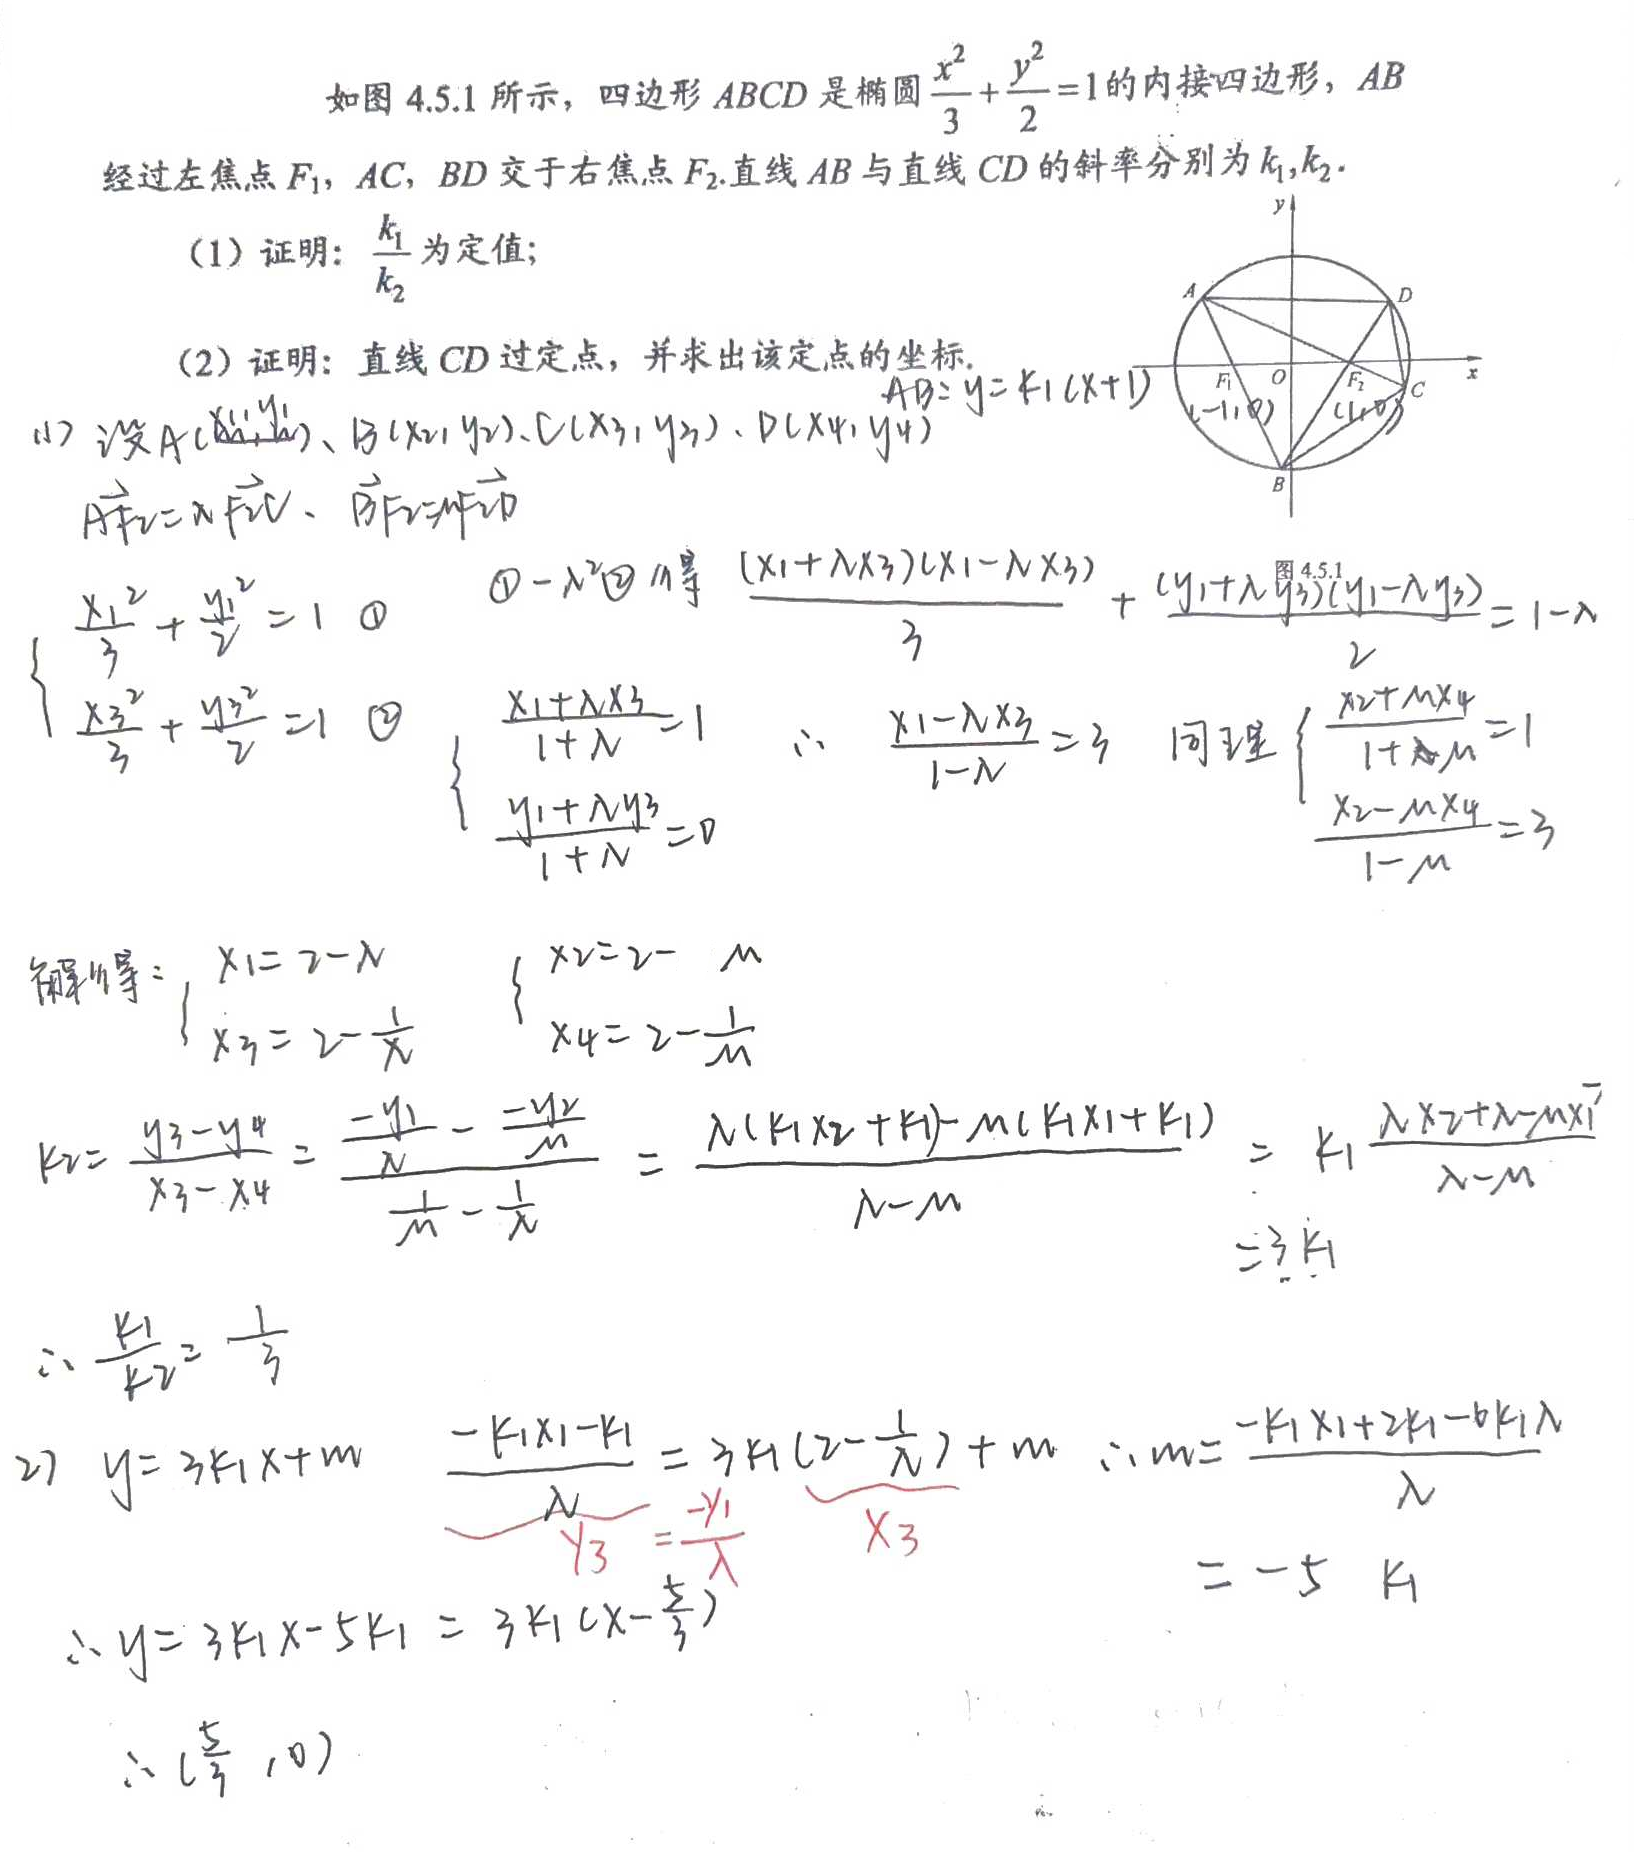 如图 4.5.1 所示，四边形 ABCD 是椭圆 x²/3 + y²/2 = 1 的内接四边形，AB
经过左焦点 F₁，AC，BD 交于右焦点 F₂.直线 AB 与直线 CD 的斜率分别为 k₁,k₂.
（1）证明：k₁/k₂ 为定值;
（2）证明：直线 CD 过定点，并求出该定点的坐标.
y
A
D
F₁
O
F₂
C
x
(-1,0)
(1,0)
B
图 4.5.1
AB: y=k₁(x+1)
(1) 设A(x₁,y₁)、B(x₂,y₂)、C(x₃,y₃)、D(x₄,y₄)
AF₂=λF₂C、BF₂=μF₂D
{ x₁²/3 + y₁²/2 = 1 ①
x₃²/3 + y₃²/2 = 1 ②
①-λ²②得 (x₁+λx₃)(x₁-λx₃)/3 + (y₁+λy₃)(y₁-λy₃)/2 = 1-λ
{ (x₁+λx₃)/(1+λ) = 1
(y₁+λy₃)/(1+λ) = 0
∴ (x₁-λx₃)/(1-λ) = 3
同理 { (x₂+μx₄)/(1+μ) = 1
(x₂-μx₄)/(1-μ) = 3
解得: { x₁=2-λ
x₃=2-1/λ
{ x₂=2-μ
x₄=2-1/μ
k₂= (y₃-y₄)/(x₃-x₄) = (-y₁/λ - -y₂/μ)/(1/μ - 1/λ) = (λ(k₁x₂+k₁)-μ(k₁x₁+k₁))/(λ-μ) = k₁ (λx₂+λ-μx₁-)/(λ-μ)
=3k₁
∴ k₁/k₂ = 1/3
2) y=3k₁x+m (-k₁x₁-k₁)/λ = 3k₁(2-1/λ)+m ∴m= (-k₁x₁+2k₁-6k₁λ)/λ
y₃ = -y₁/λ x₃
= -5 k₁
∴y=3k₁x-5k₁ = 3k₁(x-5/3)
∴(5/3,0)